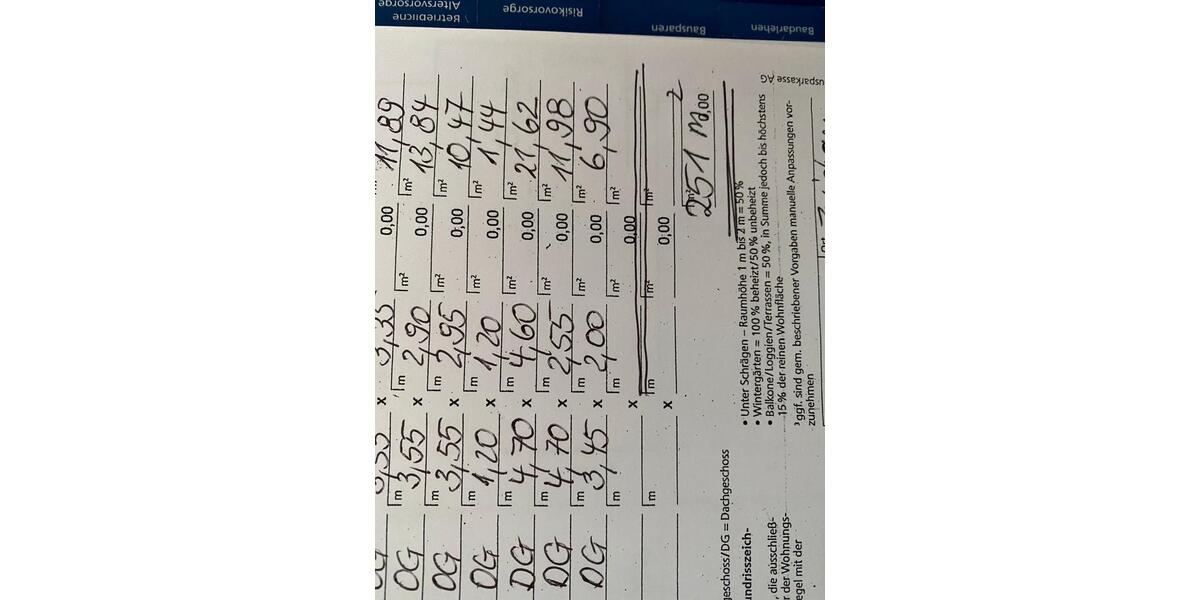 Betriebliche
Altersvorsorge
Risikovorsorge
Bausparen
Baudarlehen
usparkasse AG
3,35 0,00 11,89
OG m 3,55 x m 2,90 m² 0,00 m² 13,84
OG m 3,55 x m 2,95 m² 0,00 m² 10,47
OG m 1,20 x m 1,20 m² 0,00 m² 1,44
DG m 4,70 x m 4,60 m² 0,00 m² 21,62
DG m 4,70 x m 2,55 m² 0,00 m² 11,98
DG m 3,45 x m 2,00 m² 0,00 m² 6,90
m x m² 0,00 m²
m x m m² 0,00 m²
m² 251 m² 0,00
geschoss/DG = Dachgeschoss
• Unter Schrägen – Raumhöhe 1 m bis 2 m = 50 %
• Wintergärten = 100 % beheizt/50 % unbeheizt
• Balkone/Loggien/Terrassen = 50 %, in Summe jedoch bis höchstens
15 % der reinen Wohnfläche
³ ggf. sind gem. beschriebener Vorgaben manuelle Anpassungen vor-
zunehmen
undrisszeich-
, die ausschließ-
r der Wohnungs-
egel mit der